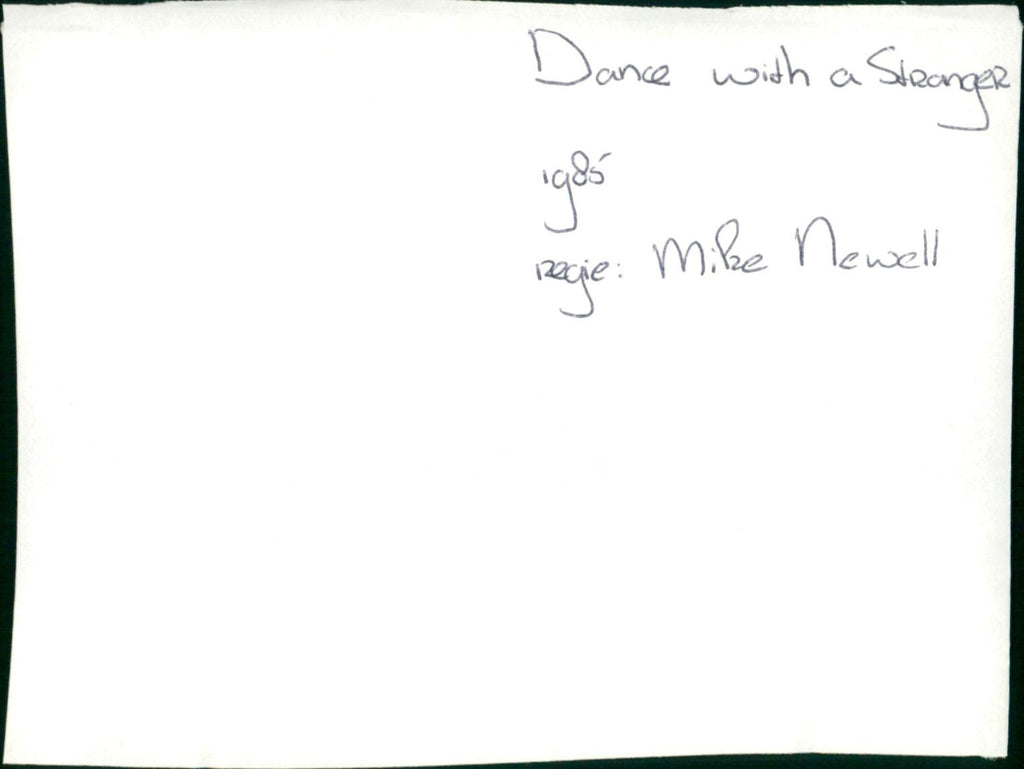 Dance with a Stranger
1985
regie: Mike Newell